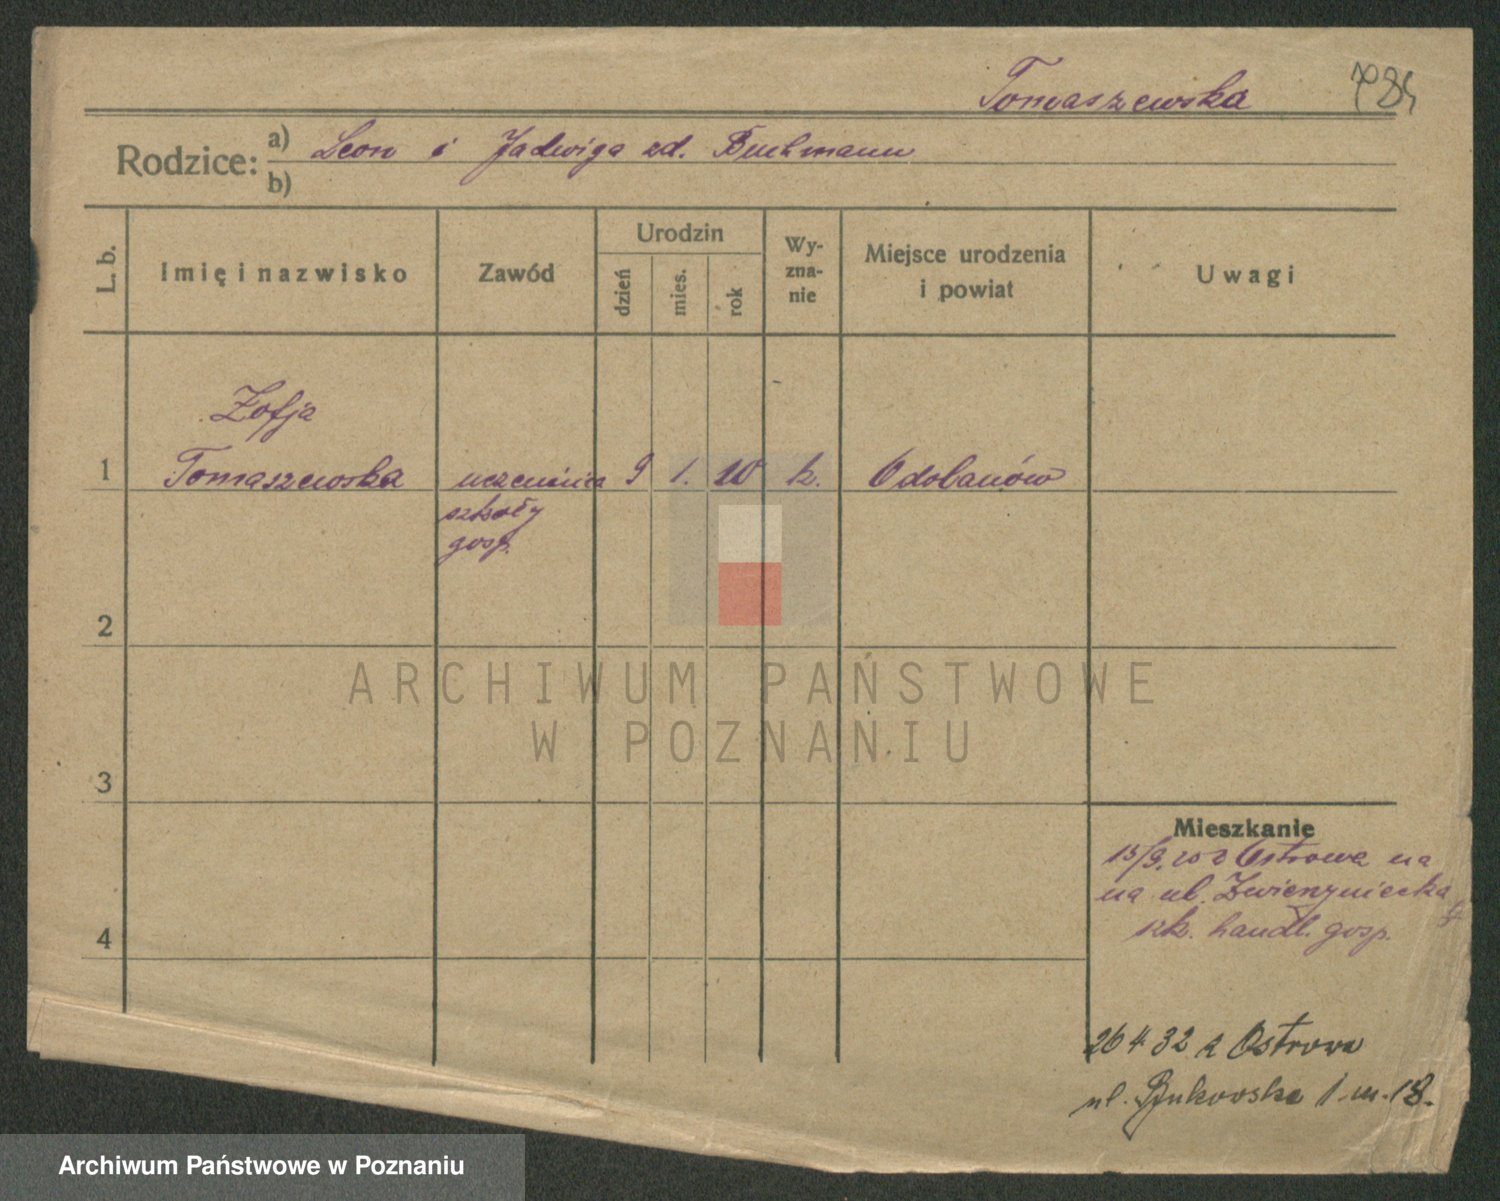 Tomaszewska
Rodzice: a) Leon i Jadwiga zd. Buchmann
b)
L. b.
Imię i nazwisko
Zawód
Urodzin
dzień
mies.
rok
Wy-
zna-
nie
Miejsce urodzenia
i powiat
Uwagi
Zofja
1 Tomaszewska uczenica 9 1. 10 k. Odolanów
szkoły
gosp.
2
ARCHIWUM PAŃSTWOWE
W POZNANIU
3
Mieszkanie
z Ostrowa na
na ul. Zwierzyniecka
szk. handl. gosp.
4
26 4 32 z Ostrowa
ul. Bukowska 1 m. 18.
Archiwum Państwowe w Poznaniu